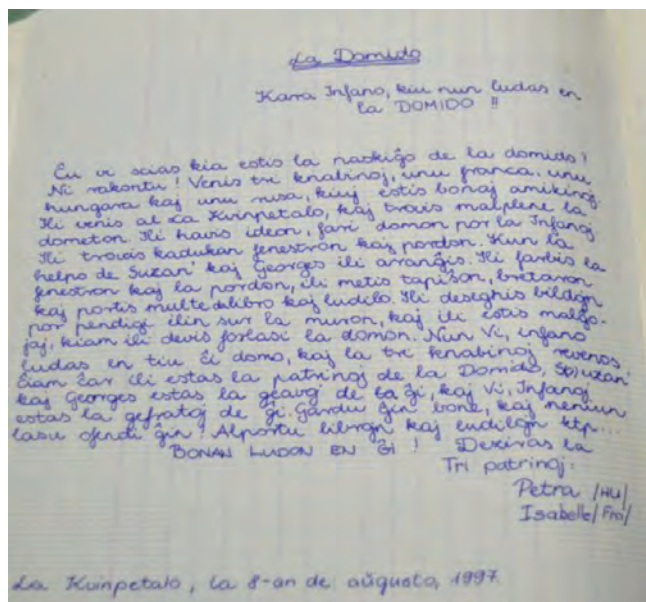 La Domido
Kara Infano, kiu nun ludas en
la DOMIDO !!
Ĉu vi scias kia estis la naskiĝo de la domido?
Ni rakontu! Venis tri knabinoj, unu franca, unu
hungara kaj unu rusa, kiuj estis bonaj amikinoj.
Ili venis al La Kvinpetalo, kaj trovis malplene la
dometon. Ili havis ideon, fari domon por la Infanoj
Ili trovis kadukan fenestron kaj pordon. Kun la
helpo de Suzan' kaj Georges ili arranĝis. Ili farbis la
fenestron kaj la pordon, ili metis tapiŝon, bretaron
kaj portis multe da libro kaj ludilo. Ili deseghis bildojn
por pendigi ilin sur la muron, kaj ili estis malĝo-
jaj, kiam ili devis forlasi la domon. Nun Vi, infano
ludas en tiu ĉi domo, kaj la tri knabinoj revenos.
Ĉiam ĉar ili estas la patrinoj de la Domido, Suzan'
kaj Georges estas la geavoj de ĝi, kaj Vi, Infanoj
estas la gefratoj de ĝi. Gardu ĝin bone, kaj neniun
lasu ofendi ĝin! Alportu librojn kaj ludilojn ktp...
BONAN LUDON EN ĜI ! Deziras la
Tri patrinoj:
Petra /HU/
Isabelle/Fra/
La Kvinpetalo, la 8-an de aŭgusto, 1997.